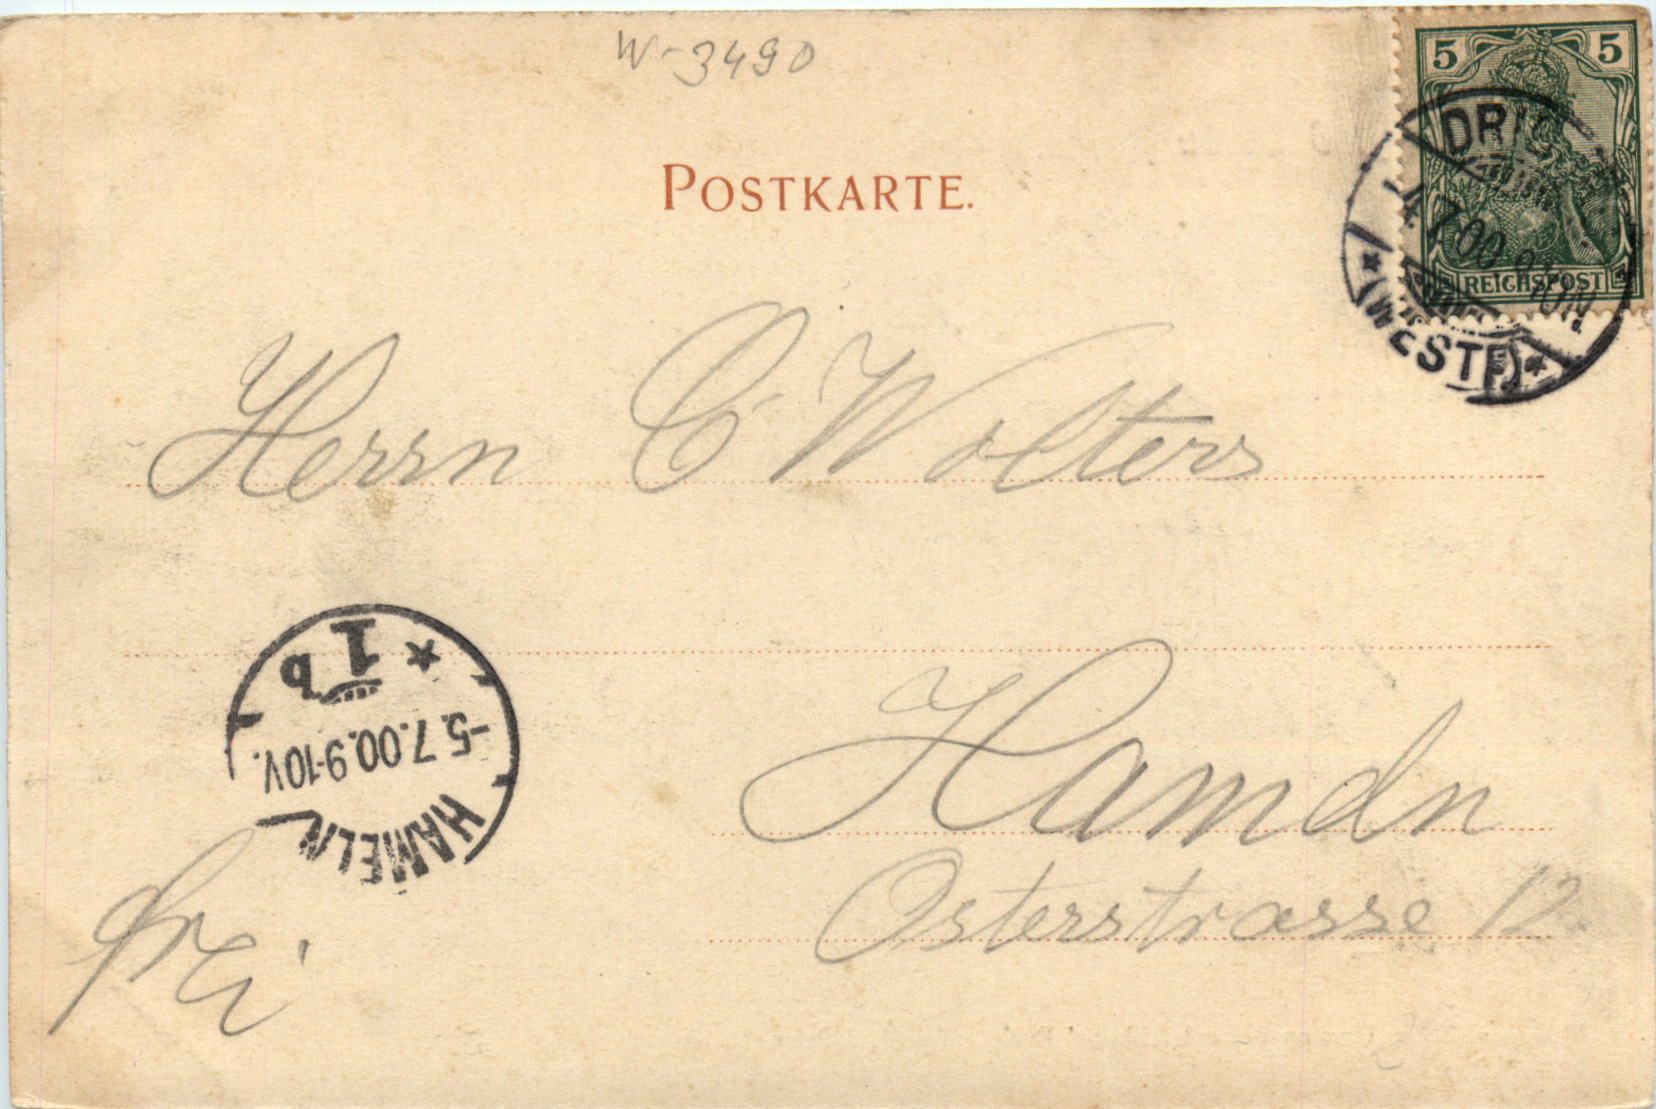 W-3490
5 5
REICHSPOST
DRI
7.00.
* (WESTF) *
POSTKARTE.
Herrn C Wolters
* 1 b
-5.7.00.9-10V.
HAMELN
Hameln
Osterstrasse 12.
frei